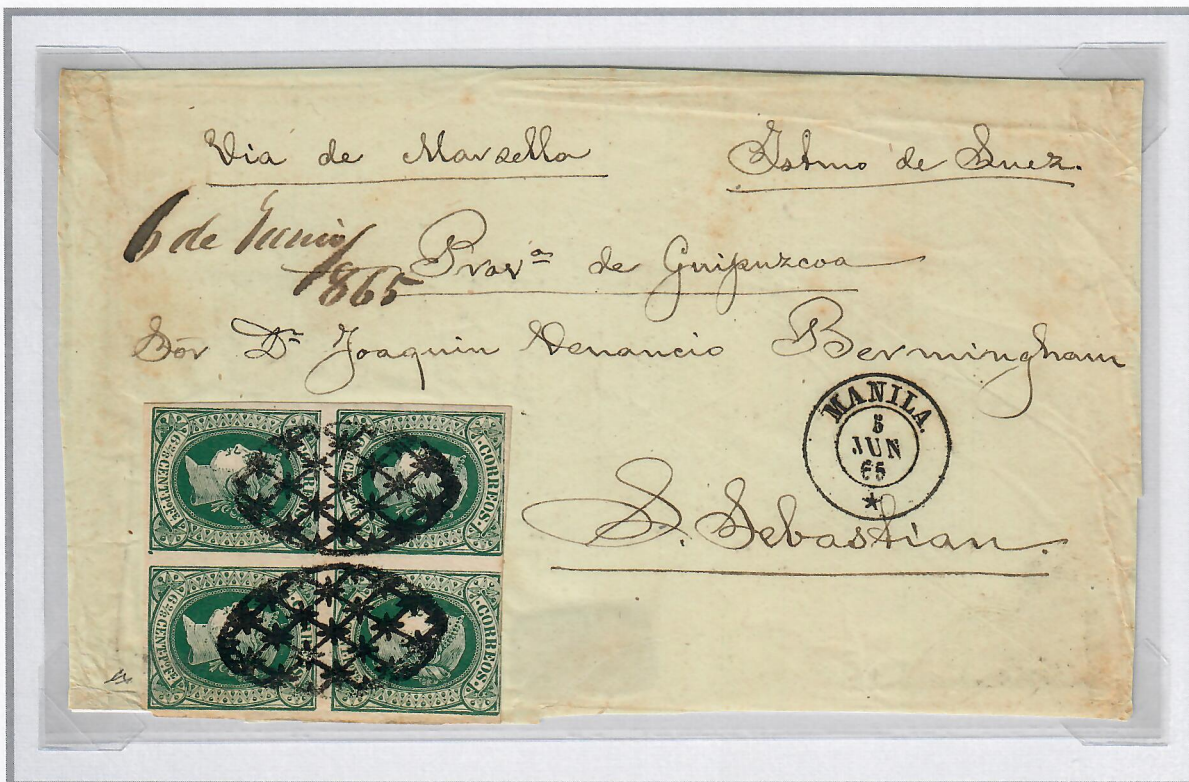 Via de Marsella
Istmo de Suez.
6 de Junio
1865
Prov.ª de Guipuzcoa
Sor Dn Joaquin Venancio Bermingham
MANILA
5
JUN
65
S. Sebastian.
CORREOS
CORREOS